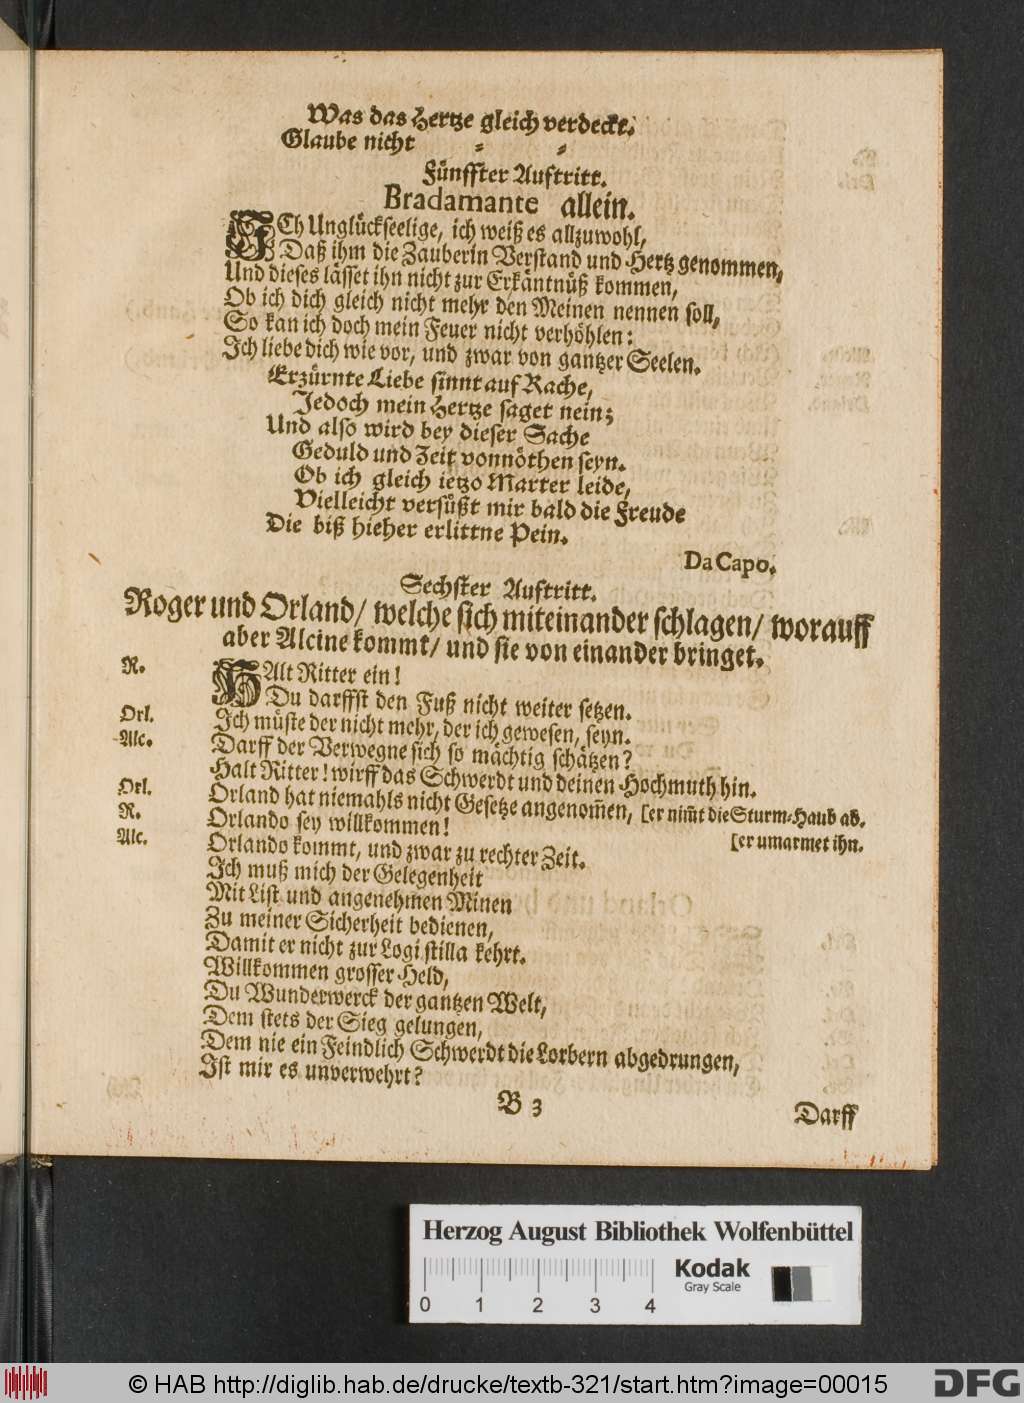 Was das Hertze gleich verdeckt.
Glaube nicht ⸗ ⸗
Fünffter Auftritt.
Bradamante allein.
ICh Unglückseelige, ich weiß es allzuwohl,
Daß ihm die Zauberin Verstand und Hertz genommen,
Und dieses lässet ihn nicht zur Erkäntnüß kommen,
Ob ich dich gleich nicht mehr den Meinen nennen soll,
So kan ich doch mein Feuer nicht verhöhlen:
Ich liebe dich wie vor, und zwar von gantzer Seelen.
Erzürnte Liebe sinnt auf Rache,
Jedoch mein Hertze saget nein;
Und also wird bey dieser Sache
Geduld und Zeit vonnöthen seyn.
Ob ich gleich ietzo Marter leide,
Vielleicht versüßt mir bald die Freude
Die biß hieher erlittne Pein.
Da Capo.
Sechster Auftritt.
Roger und Orland/ welche sich miteinander schlagen/ worauff
aber Alcine kommt/ und sie von einander bringet.
R. HAlt Ritter ein!
Du darffst den Fuß nicht weiter setzen.
Orl. Ich müste der nicht mehr, der ich gewesen, seyn.
Alc. Darff der Verwegne sich so mächtig schätzen?
Halt Ritter! wirff das Schwerdt und deinen Hochmuth hin.
Orl. Orland hat niemahls nicht Gesetze angenom̃en, [er nim̃t die Sturm⸗Haub ab.
R. Orlando sey willkommen! [er umarmet ihn.
Alc. Orlando kommt, und zwar zu rechter Zeit.
Ich muß mich der Gelegenheit
Mit List und angenehmen Minen
Zu meiner Sicherheit bedienen,
Damit er nicht zur Logistilla kehrt.
Willkommen grosser Held,
Du Wunderwerck der gantzen Welt,
Dem stets der Sieg gelungen,
Dem nie ein Feindlich Schwerdt die Lorbern abgedrungen,
Ist mir es unverwehrt?
B 3
Darff
Herzog August Bibliothek Wolfenbüttel
Kodak
Gray Scale
0 1 2 3 4
© HAB http://diglib.hab.de/drucke/textb-321/start.htm?image=00015
DFG